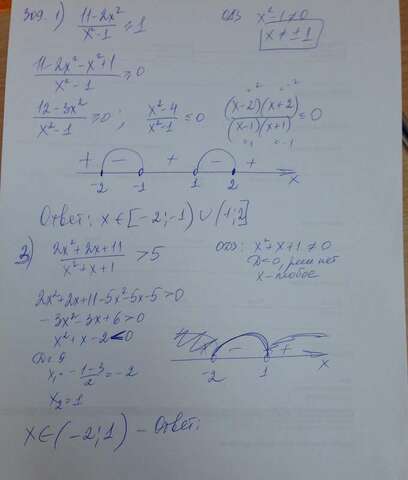 309. 1) (11-2x²)/(x²-1) ≥ 1   ОДЗ x²-1≠0
x ≠ ±1
(11-2x²-x²+1)/(x²-1) ≥ 0
(12-3x²)/(x²-1) ≥ 0 ; (x²-4)/(x²-1) ≤ 0   ((x-2)(x+2))/((x-1)(x+1)) ≤ 0
+ - + - +
-2 -1 1 2 x
Ответ: x∈[-2;-1) ∪ (1;2]
3) (2x²+2x+11)/(x²+x+1) > 5   ОДЗ: x²+x+1≠0
D<0, реш нет
x-любое
2x²+2x+11-5x²-5x-5>0
-3x²-3x+6>0
x²+x-2<0
D=9
x₁=(-1-3)/2=-2
x₂=1
- +
-2 1 x
x∈(-2;1) – Ответ: